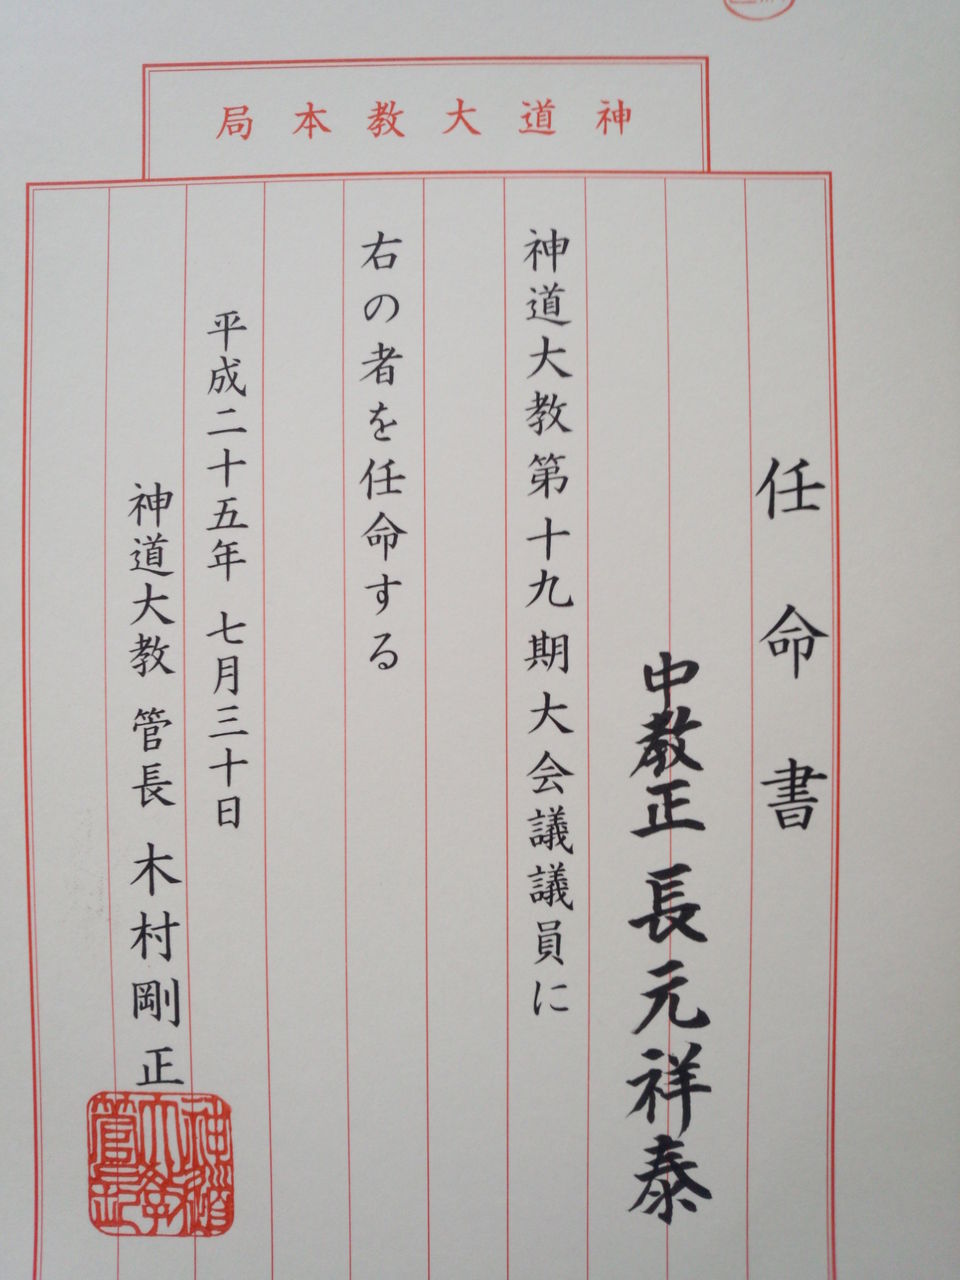 神道大教本局
任命書
中教正 長元祥泰
神道大教第十九期大会議議員に
右の者を任命する
平成二十五年 七月三十日
神道大教 管長 木村剛正